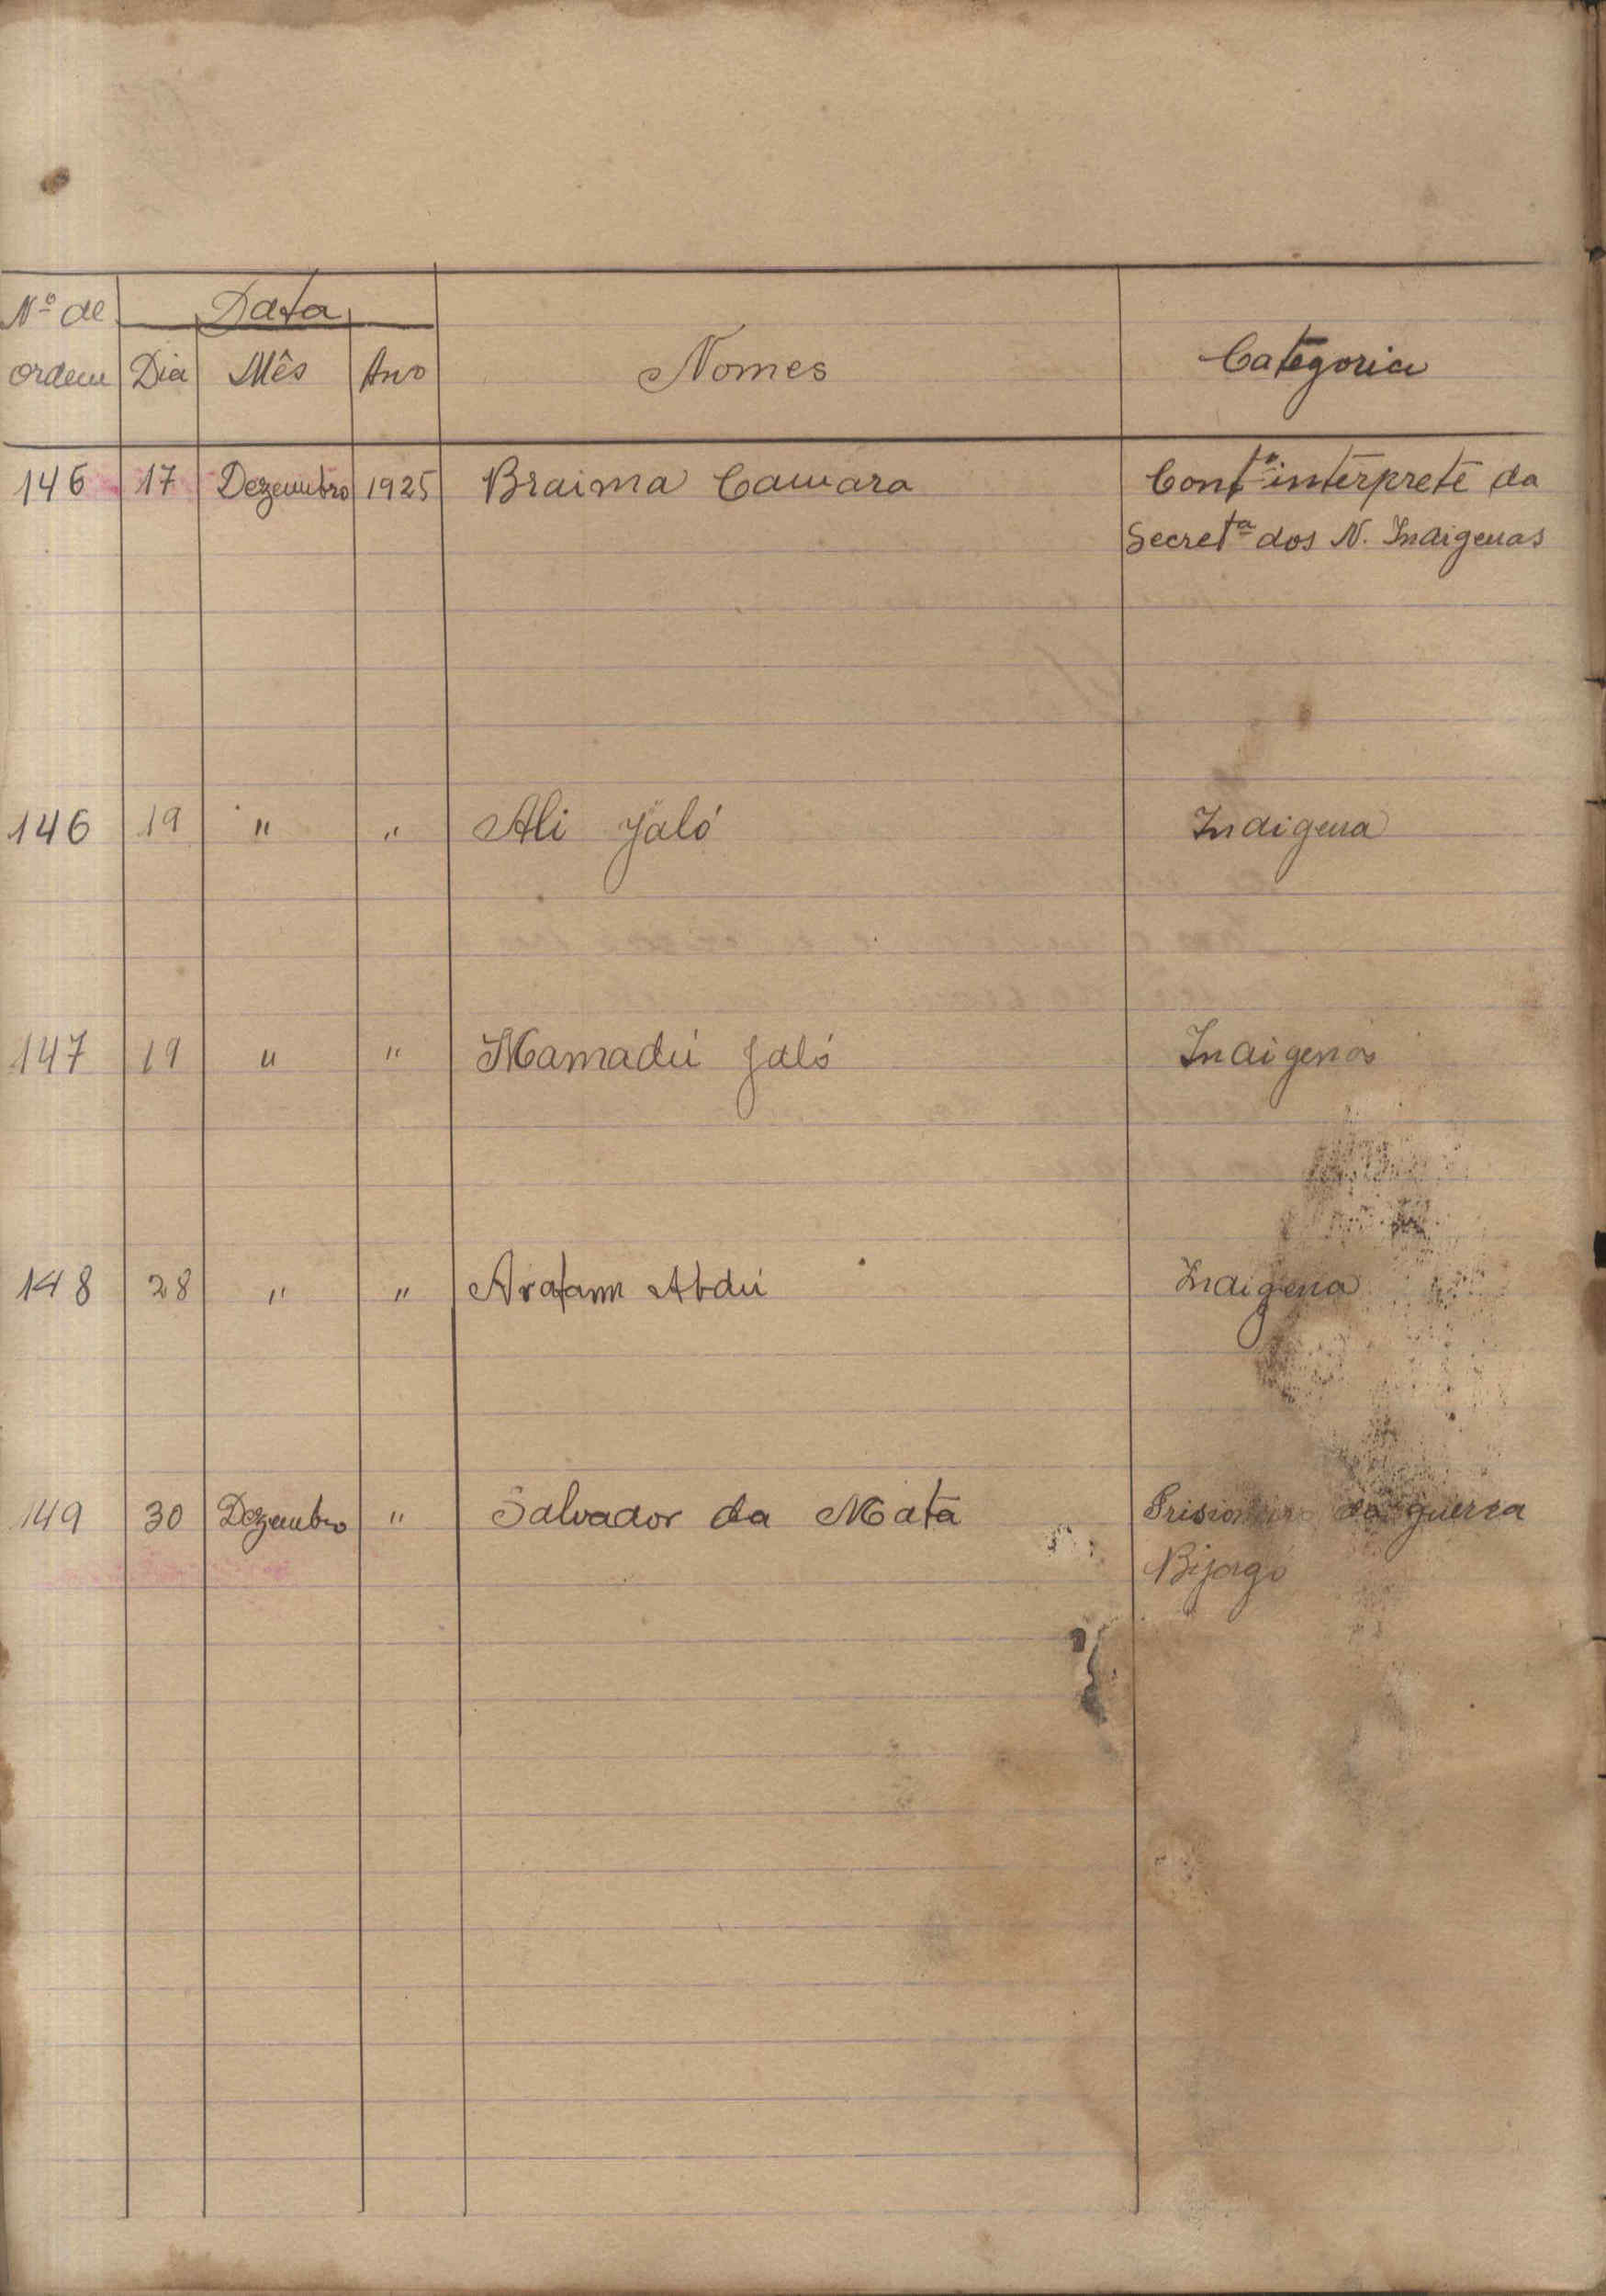 Nº de Data
ordem Dia Mês Ano Nomes Categoria
146 17 Dezembro 1925 Braima Camara Contº interprete da
Secretª dos N. Indigenas
146 19 " " Ali Jaló Indigena
147 19 " " Mamadú Jaló Indigena
148 28 " " Arafam Abdú Indigena
149 30 Dezembro " Salvador da Mata Prisioneiro da guerra
Bijagó